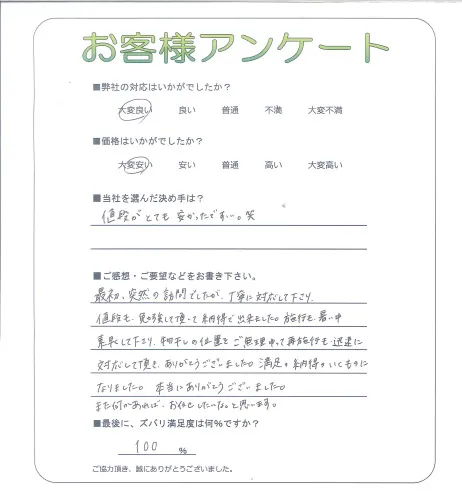 お客様アンケート
■弊社の対応はいかがでしたか？
大変良い 良い 普通 不満 大変不満
■価格はいかがでしたか？
大変安い 安い 普通 高い 大変高い
■当社を選んだ決め手は？
値段がとても安かったですー。笑
■ご感想・ご要望などをお書き下さい。
最初、突然の訪問でしたが、丁寧に対応して下さり、
値段も、勉強して頂いて納得出来ました。施行も、暑い中
して下さり、物干しの位置をご無理申って再施行も、迅速に
対応して頂き、ありがとうございました。満足。納得。いくものに
なりました。本当にありがとうございました。
また何かあれば、お任せしたいな。と思います。
■最後に、ズバリ満足度は何%ですか？
100 %
ご協力頂き、誠にありがとうございました。